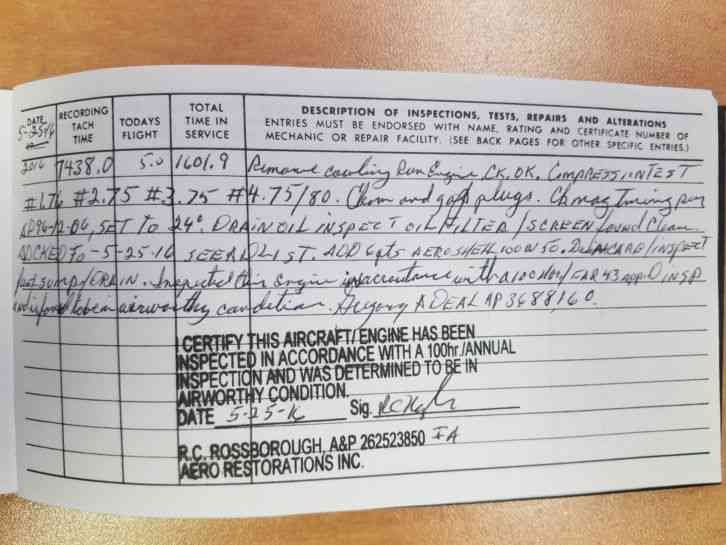 DATE
5-25-16
RECORDING TACH TIME
TODAYS FLIGHT
TOTAL TIME IN SERVICE
DESCRIPTION OF INSPECTIONS, TESTS, REPAIRS AND ALTERATIONS
ENTRIES MUST BE ENDORSED WITH NAME, RATING AND CERTIFICATE NUMBER OF
MECHANIC OR REPAIR FACILITY. (SEE BACK PAGES FOR OTHER SPECIFIC ENTRIES.)
2016 7438.0 5.0 1601.9 Remove cowling Run Engine, CK, OK. COMPRESSION TEST
#1.76 #2.75 #3.75 #4.75/80. Clean and gap plugs. Ck mag Timing per
96-12-06, SET TO 24°. DRAIN OIL INSPECT OIL FILTER/SCREEN found Clean
TO-5-25-16 SEE AD LIST. ADD 6 qts AEROSHELL 100W50. /INSPECT
SUMP/DRAIN. Inspected this Engine with a 100 HOU/FAR 43 APP D INSP
and is found to be in airworthy condition. Gregory A DEAL AP 3688160.
I CERTIFY THIS AIRCRAFT/ENGINE HAS BEEN
INSPECTED IN ACCORDANCE WITH A 100hr./ANNUAL
INSPECTION AND WAS DETERMINED TO BE IN
AIRWORTHY CONDITION.
DATE 5-25-16 Sig.
R.C. ROSSBOROUGH, A&P 262523850 IA
AERO RESTORATIONS INC.